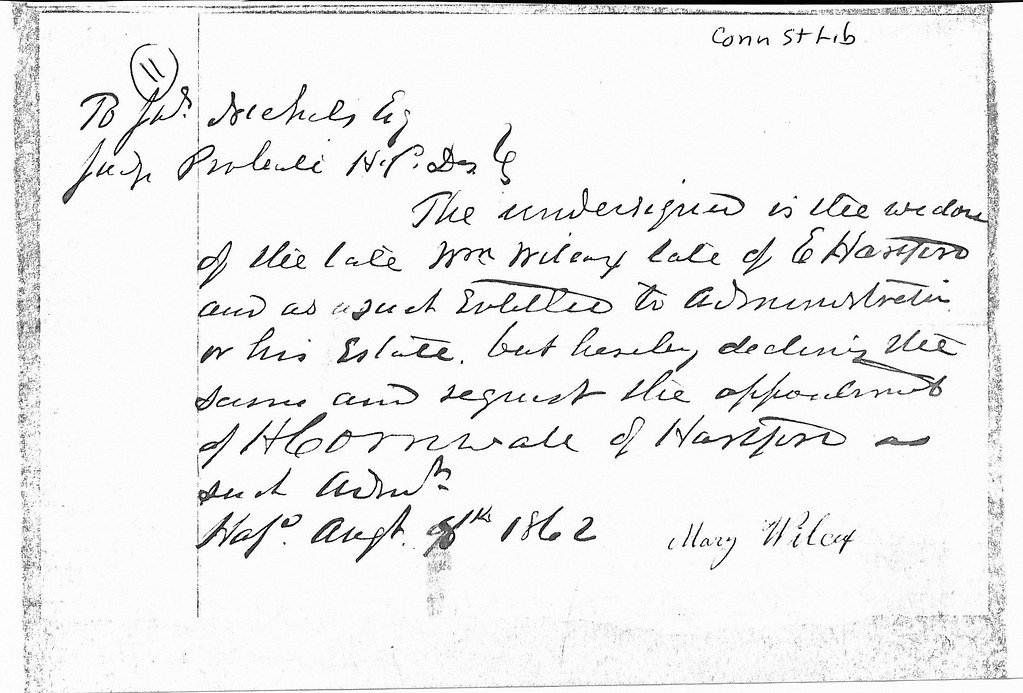 Conn St Lib
11
To Jas. Nichols Esq
Judge Probate H.P. Dis.
The undersigned is the widow
of the late Wm Wilcox late of E Hartford
and as such Entitled to administration
on his Estate. but hereby declines the
same and request the appointment
of H Cornwall of Hartford as
such Admr
Augt. 1862
Mary Wilcox